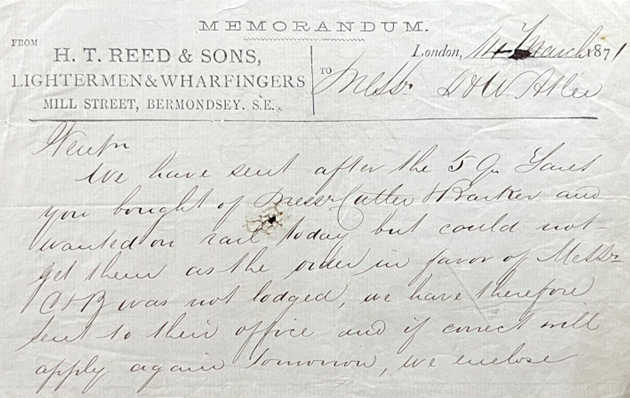 MEMORANDUM.
FROM
H. T. REED & SONS,
LIGHTERMEN & WHARFINGERS
MILL STREET, BERMONDSEY. S.E.
London, March 1871
TO
Messrs D & W Allen
Gentn
We have sent after the 5 Qr
you bought of Messrs Cutler & Barker and
wanted on rail today but could not
get them as the order in favor of Messrs
C & B was not lodged, we have therefore
sent to their office and if correct will
apply again tomorrow, we enclose